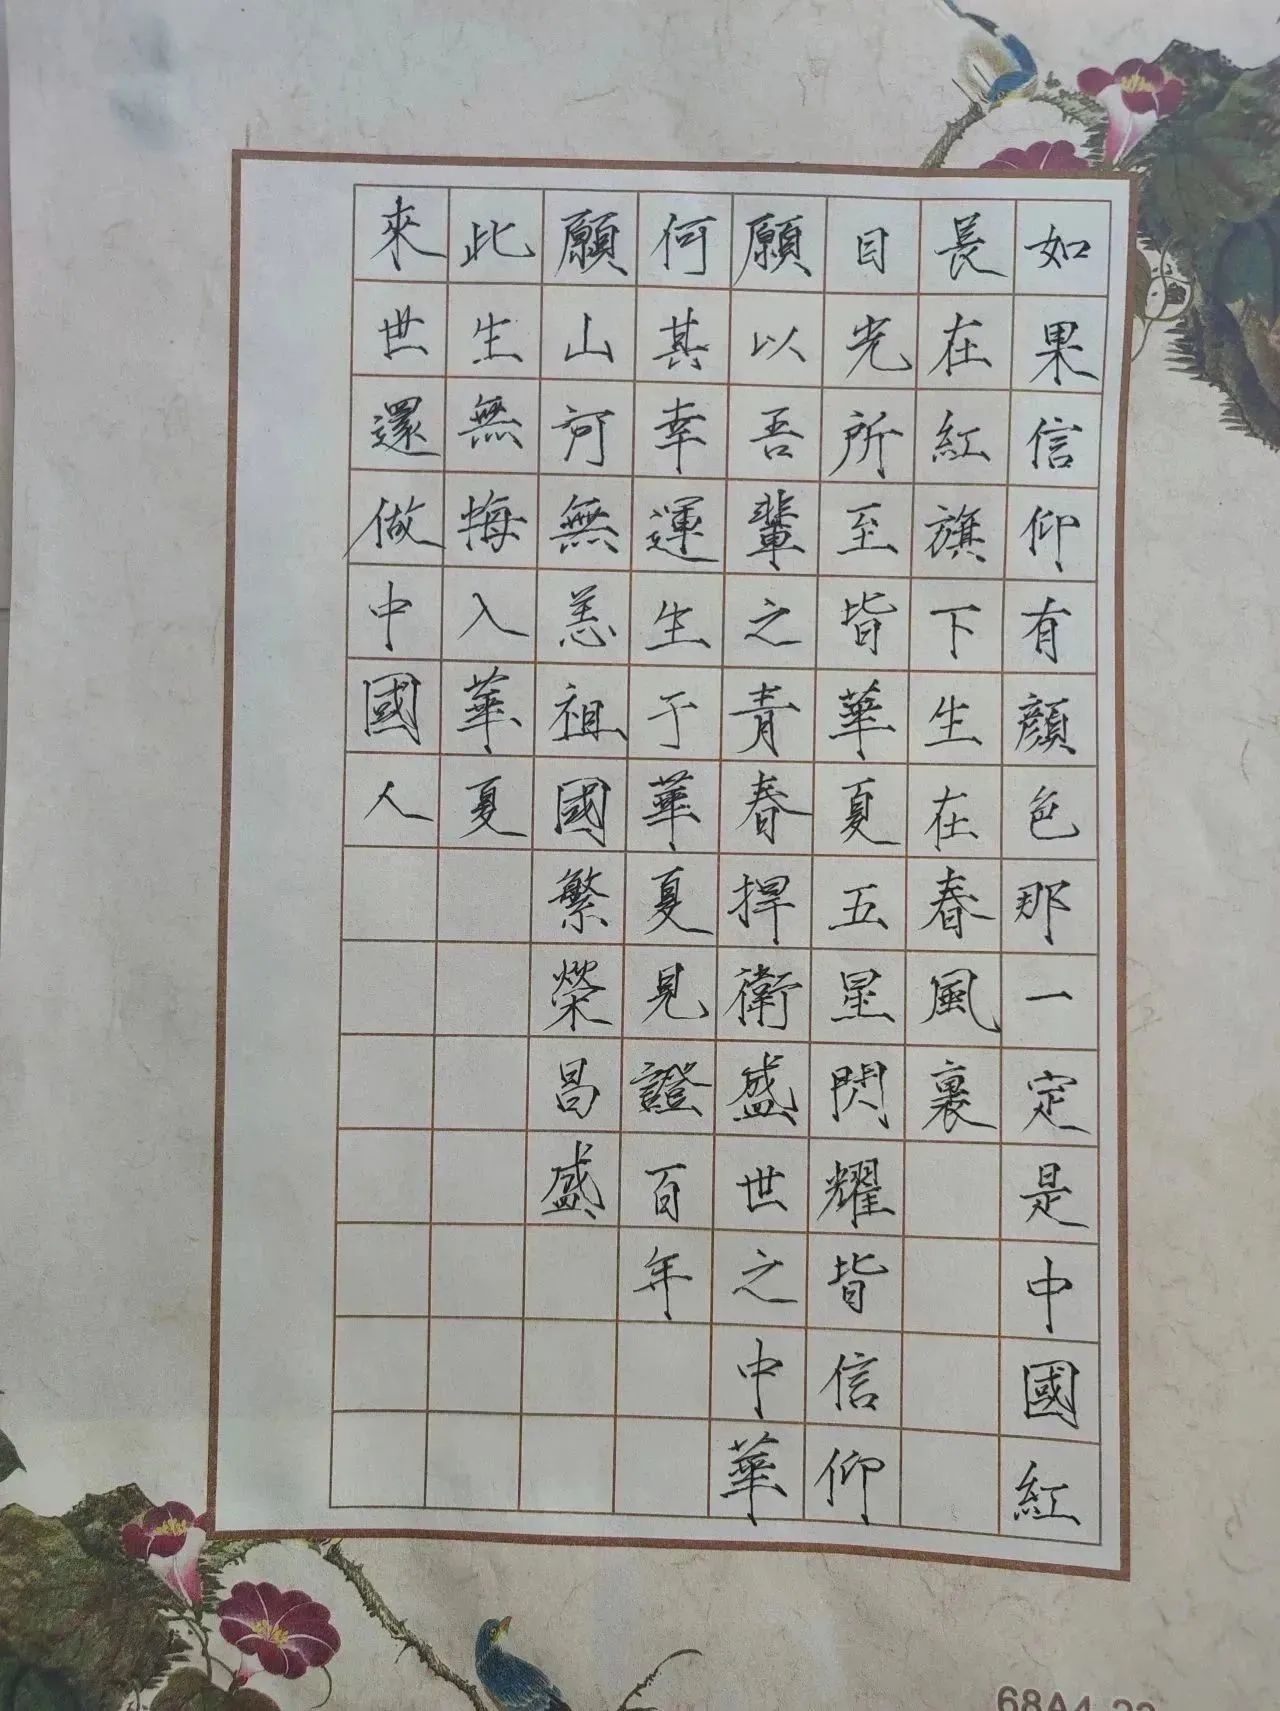 如果信仰有顏色那一定是中國紅
長在紅旗下生在春風裏
目光所至皆華夏五星閃耀皆信仰
願以吾輩之青春捍衛盛世之中華
何其幸運生于華夏見證百年
願山河無恙祖國繁榮昌盛
此生無悔入華夏
來世還做中國人